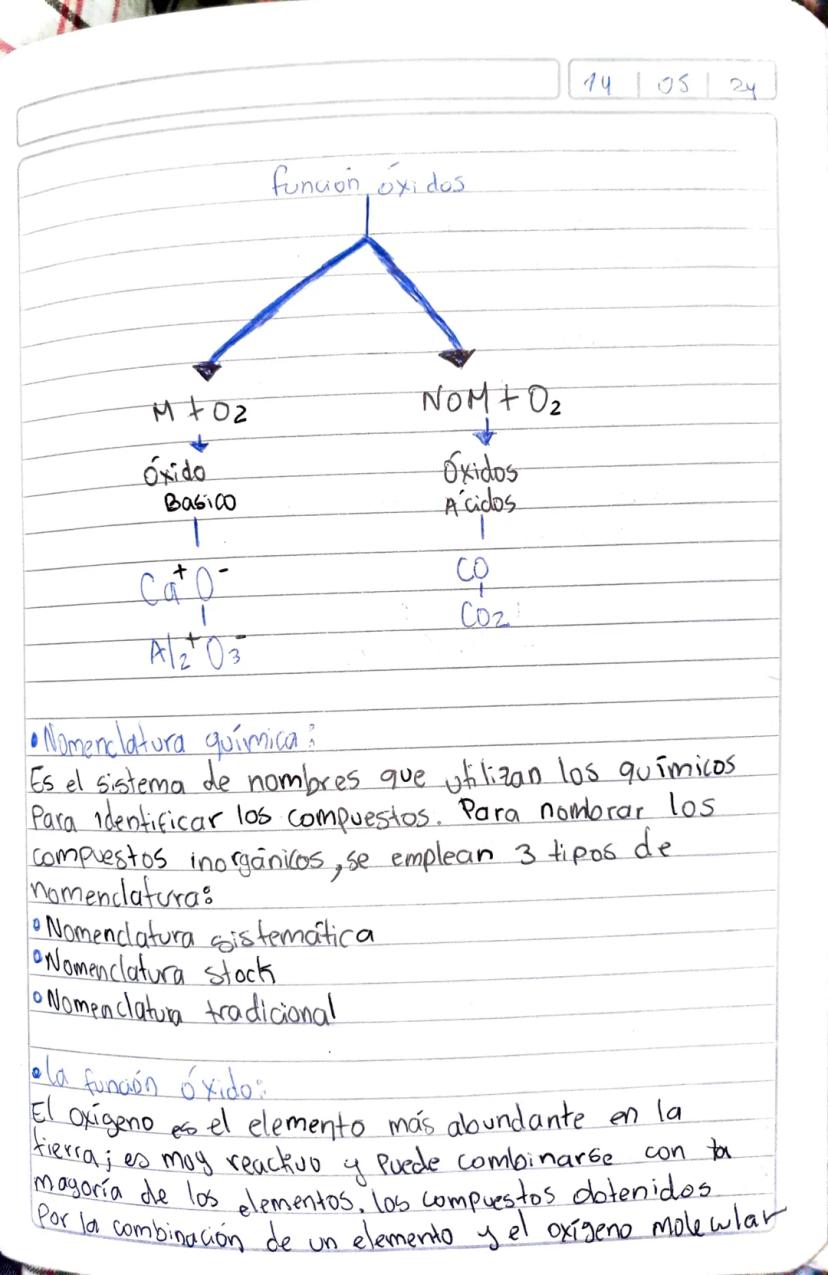 14 | 05 | 24
función óxidos
M + O2
NOM + O2
Óxido
Basico
Óxidos
Ácidos
Ca+ O-
Al2+ O3-
CO
CO2
• Nomenclatura química:
Es el sistema de nombres que utilizan los químicos
Para identificar los compuestos. Para nombrar los
compuestos inorgánicos, se emplean 3 tipos de
nomenclatura:
• Nomenclatura sistemática
• Nomenclatura stock
• Nomenclatura tradicional
• la función óxido:
El oxígeno es el elemento más abundante en la
tierra; es moy reactivo y Puede combinarse con la
mayoría de los elementos. los compuestos obtenidos
Por la combinación de un elemento y el oxígeno molecular